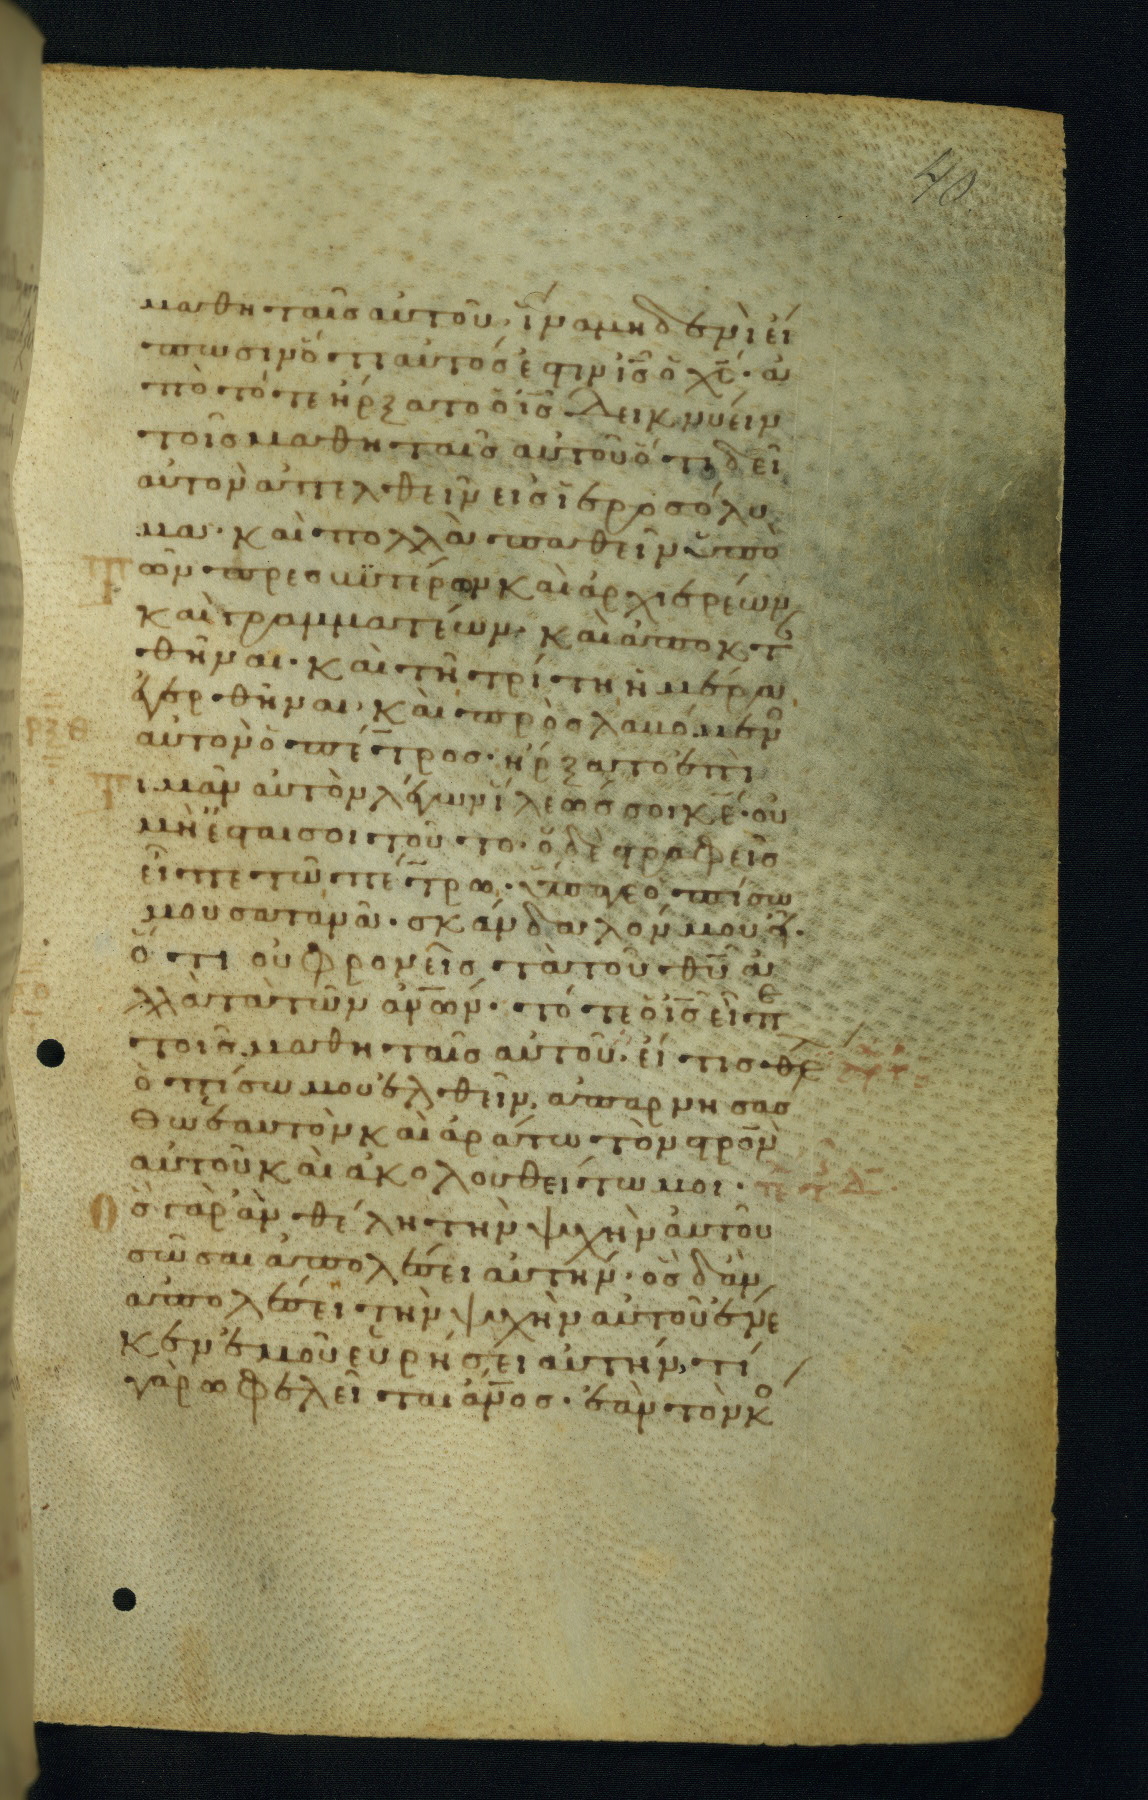 40
μαθηταῖς αὐτοῦ, ἵνα μηδενὶ εἴ
πωσιν ὅτι αὐτός ἐστιν ις ὁ χς· ἀ
πὸ τότε ἤρξατο ὁ ις δεικνύειν
τοῖς μαθηταῖς αὐτοῦ ὅτι δεῖ
αὐτὸν ἀπελθεῖν εἰς ϊεροσόλυ
μα· καὶ πολλὰ παθεῖν ὑπὸ
τῶν πρεσβϋτέρων καὶ ἀρχιερέων
καὶ γραμματέων· καὶ ἀποκτ
θῆναι· καὶ τῇ τρίτη ἡμέρα
ἐγερθῆναι, καὶ προσλαβόμεν
ρξθ
αὐτὸν ὁ πέτρος· ἤρξατο ἐπι
τιμᾶν αὐτὸν λέγων ἵλεώς σοι κε· οὐ
μὴ ἔσται σοι τοῦτο· ὁ δὲ στραφεὶς
εἶπε τῶ πέτρω· ὕπαγε ὀπίσω
μου σατανᾶ· σκάνδαλόν μου εἶ·
ὅτι οὐ φρονεῖς τὰ τοῦ θυ ἀ
λλὰ τὰ τῶν ανων· τότε ὁ ις εἶπε
τοῖς μαθηταῖς αὐτοῦ· εἴ τις θέ
ὀπίσω μου ἐλθεῖν, ἀπαρνησάσ
θω ἑαυτὸν καὶ ἀράτω τὸν στρὸν
αὐτοῦ καὶ ἀκολουθείτω μοι·
Ὃς γὰρ ἂν θέλη τὴν ψυχὴν αὐτοῦ
σῶσαι ἀπολέσει αὐτήν· ὃς δ' ἂν
ἀπολέσει τὴν ψυχὴν αὐτοῦ ἕνε
κεν ἐμοῦ εὑρήσει αὐτήν, τί
γὰρ ὠφελεῖται ανος· ἐὰν τὸν κο